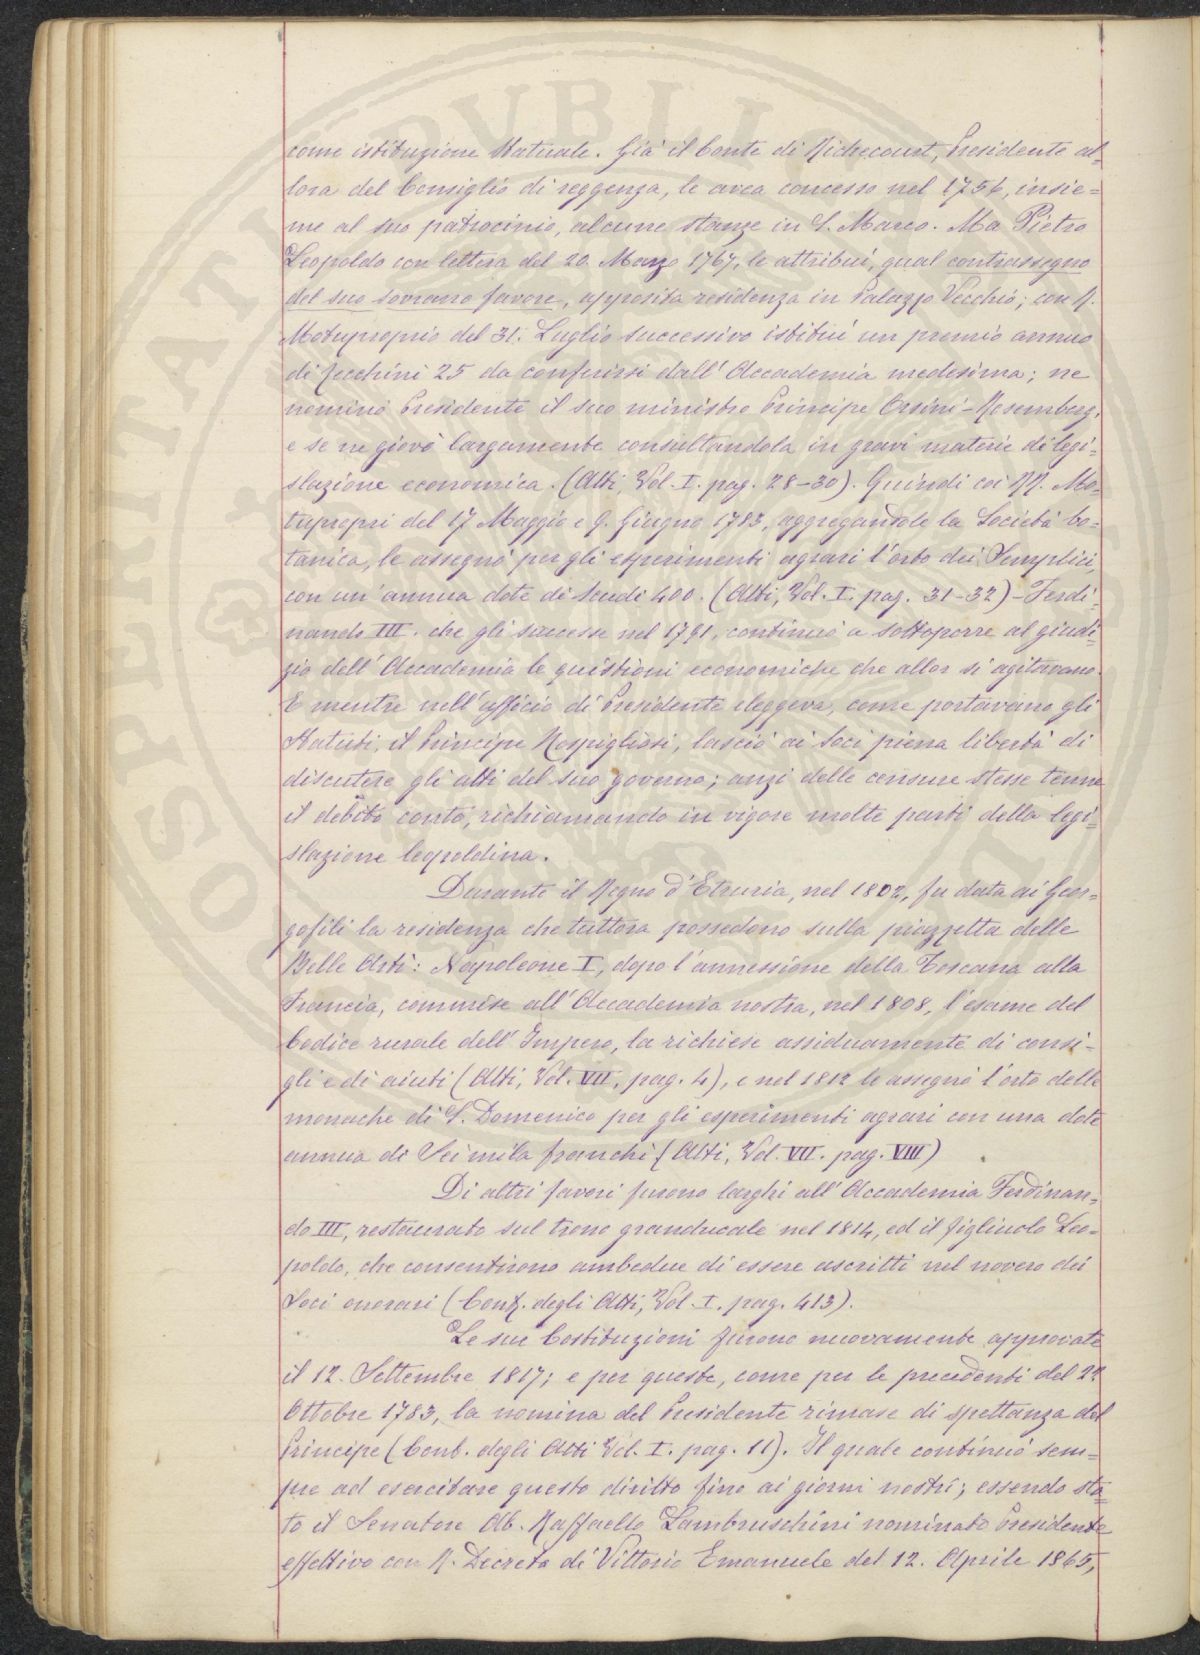 come istituzione Statuale. Già il Conte di Richecourt, Presidente al-
lora del Consiglio di reggenza, le avea concesso nel 1756, insie=
me al suo patrocinio, alcune stanze in S. Marco. Ma Pietro
Leopoldo con lettera del 20. Marzo 1767, le attribuì, qual contrassegno
del suo sovrano favore, apposita residenza in Palazzo Vecchio; con R.
Motuproprio del 31. Luglio successivo istituì un premio annuo
di Zecchini 25 da conferirsi dall' Accademia medesima; ne
nominò Presidente il suo ministro Principe Orsini-Rosemberg,
e se ne giovò largamente consultandola in gravi materie di legi=
slazione economica. (Atti, Vol. I. pag. 28-30). Quindi coi RR. Mo=
tupropri del 17 Maggio e 9. Giugno 1783, aggregandole la Società bo=
tanica, le assegnò per gli esperimenti agrari l'orto dei Semplici,
con un' annua dote di Scudi 400. (Atti, Vol. I. pag. 31-32) - Ferdi=
nando III. che gli successe nel 1791, continuò a sottoporre al giudi=
zio dell' Accademia le quistioni economiche che allor si agitavano.
E mentre nell' ufficio di Presidente eleggeva, come portavano gli
Statuti, il Principe Rospigliosi, lasciò ai Soci piena libertà di
discutere gli atti del suo governo; anzi delle censure stesse tenne
il debito conto, richiamando in vigore molte parti della legi=
slazione leopoldina.
Durante il Regno d'Etruria, nel 1802, fu data ai Geor=
gofili la residenza che tuttora possedono sulla piazzetta delle
Belle Arti: Napoleone I, dopo l'annessione della Toscana alla
Francia, commise all' Accademia nostra, nel 1808, l'esame del
Codice rurale dell' Impero, la richiese assiduamente di consi-
gli e di aiuti (Atti, Vol. VII, pag. 4), e nel 1812 le assegnò l'orto delle
monache di S. Domenico per gli esperimenti agrari con una dote
annua di Sei mila franchi (Atti, Vol. VII. pag. VIII)
Di altri favori furono larghi all' Accademia Ferdinan=
do III, restaurato sul trono granducale nel 1814, ed il figliuolo Leo=
poldo, che consentirono ambedue di essere ascritti nel novero dei
Soci onorari (Cont. degli Atti, Vol. I. pag. 413).
Le sue Costituzioni furono nuovamente approvate
il 12. Settembre 1817; e per queste, come per le precedenti del 22
Ottobre 1783, la nomina del Presidente rimase di spettanza del
Principe (Cont. degli Atti Vol. I. pag. 11). Il quale continuò sem=
pre ad esercitare questo diritto fino ai giorni nostri; essendo sta=
to il Senatore Ab. Raffaello Lambruschini nominato Presidente
effettivo con R. Decreto di Vittorio Emanuele del 12. Aprile 1865,